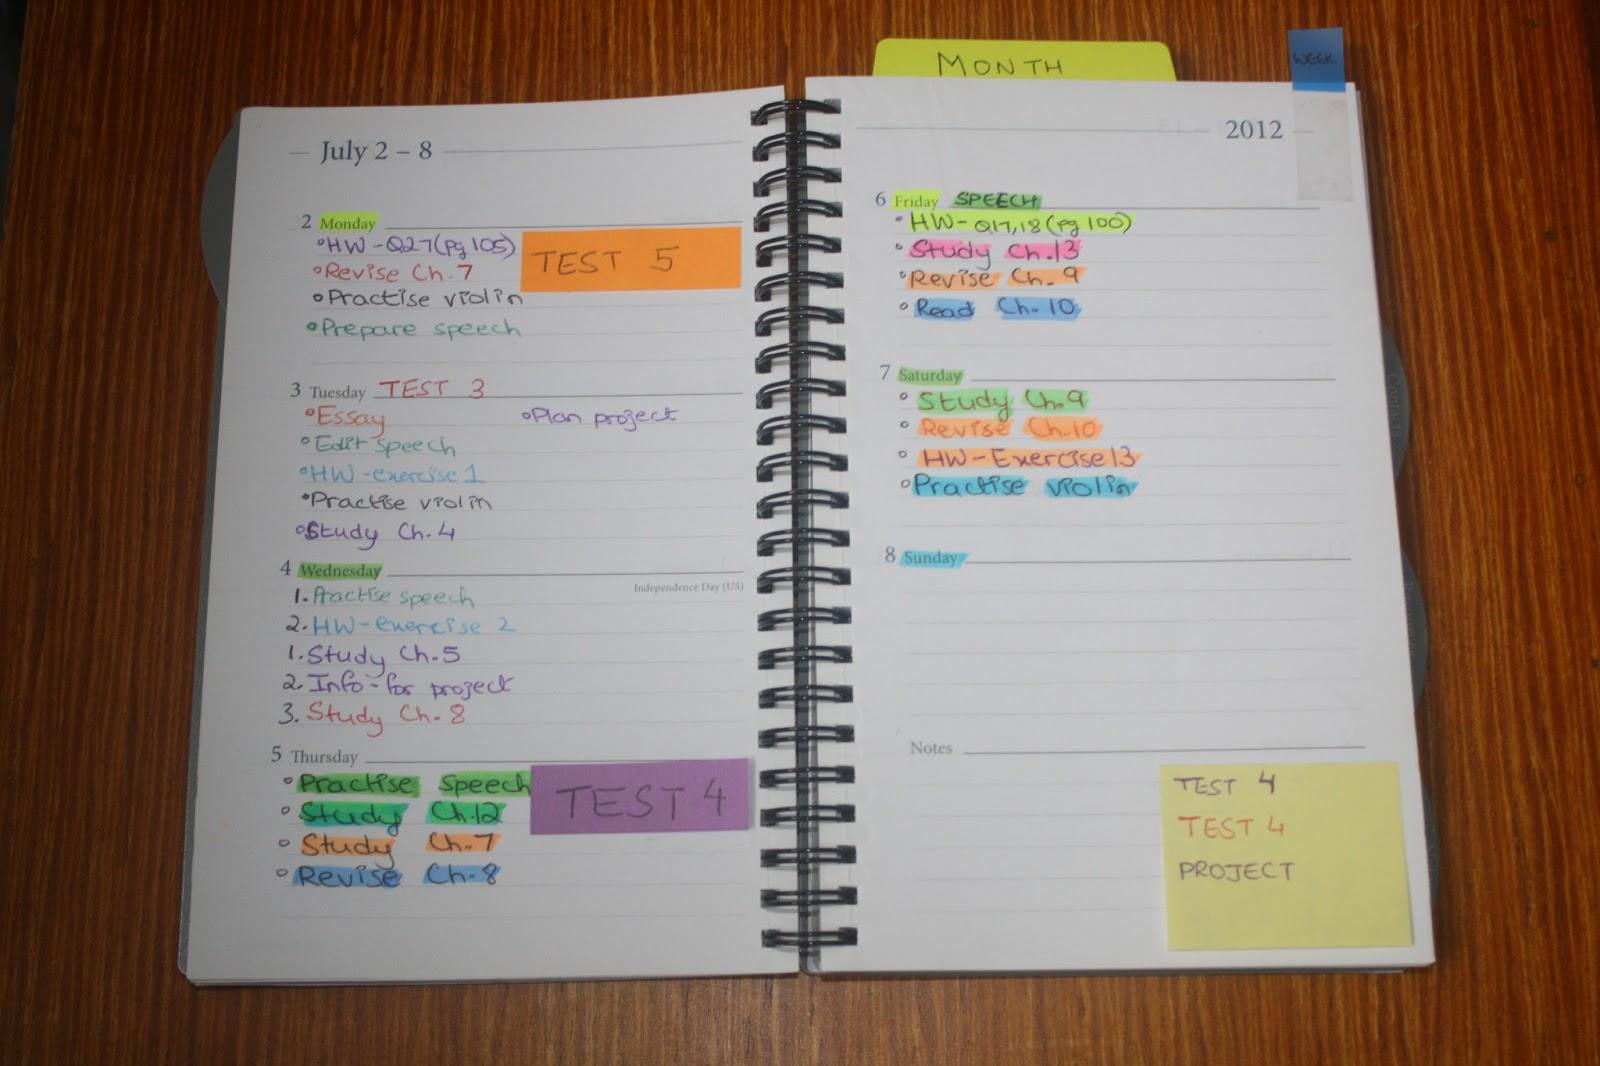 MONTH
WEEK
July 2 – 8
2 Monday
HW - Q27 (pg 105)
TEST 5
Revise Ch. 7
Practise violin
Prepare speech
3 Tuesday TEST 3
Essay
Plan project
Edit speech
HW - exercise 1
Practise violin
Study Ch. 4
4 Wednesday
Independence Day (US)
1. Practise speech
2. HW - exercise 2
1. Study Ch. 5
2. Info - for project
3. Study Ch. 8
5 Thursday
Practise Speech
TEST 4
Study Ch. 12
Study Ch. 7
Revise Ch. 8
2012
6 Friday SPEECH
HW - Q17, 18 (pg 100)
Study Ch. 13
Revise Ch. 9
Read Ch. 10
7 Saturday
Study Ch. 9
Revise Ch. 10
HW - Exercise 13
Practise violin
8 Sunday
Notes
TEST 4
TEST 4
PROJECT